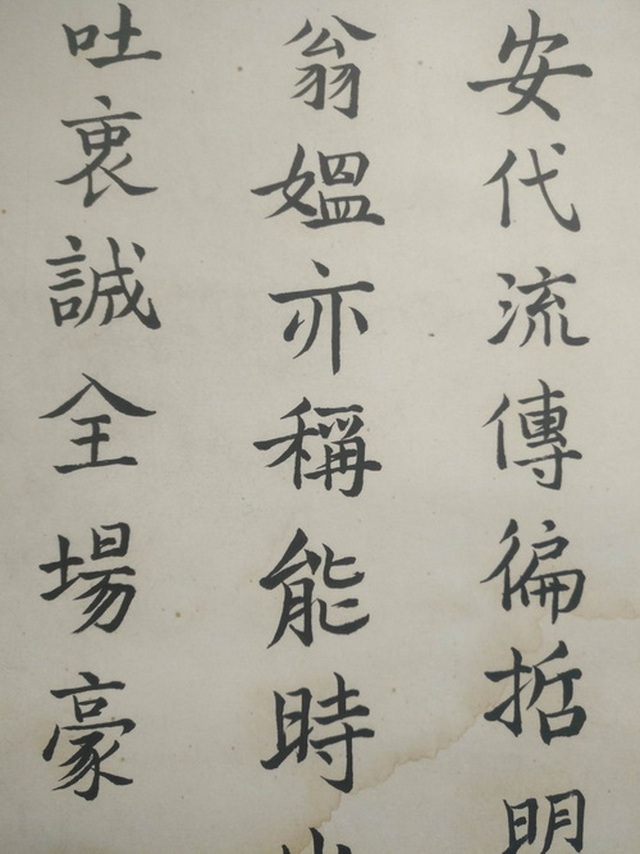 安代流傳徧哲明
翁媼亦稱能時
吐衷誠全場豪